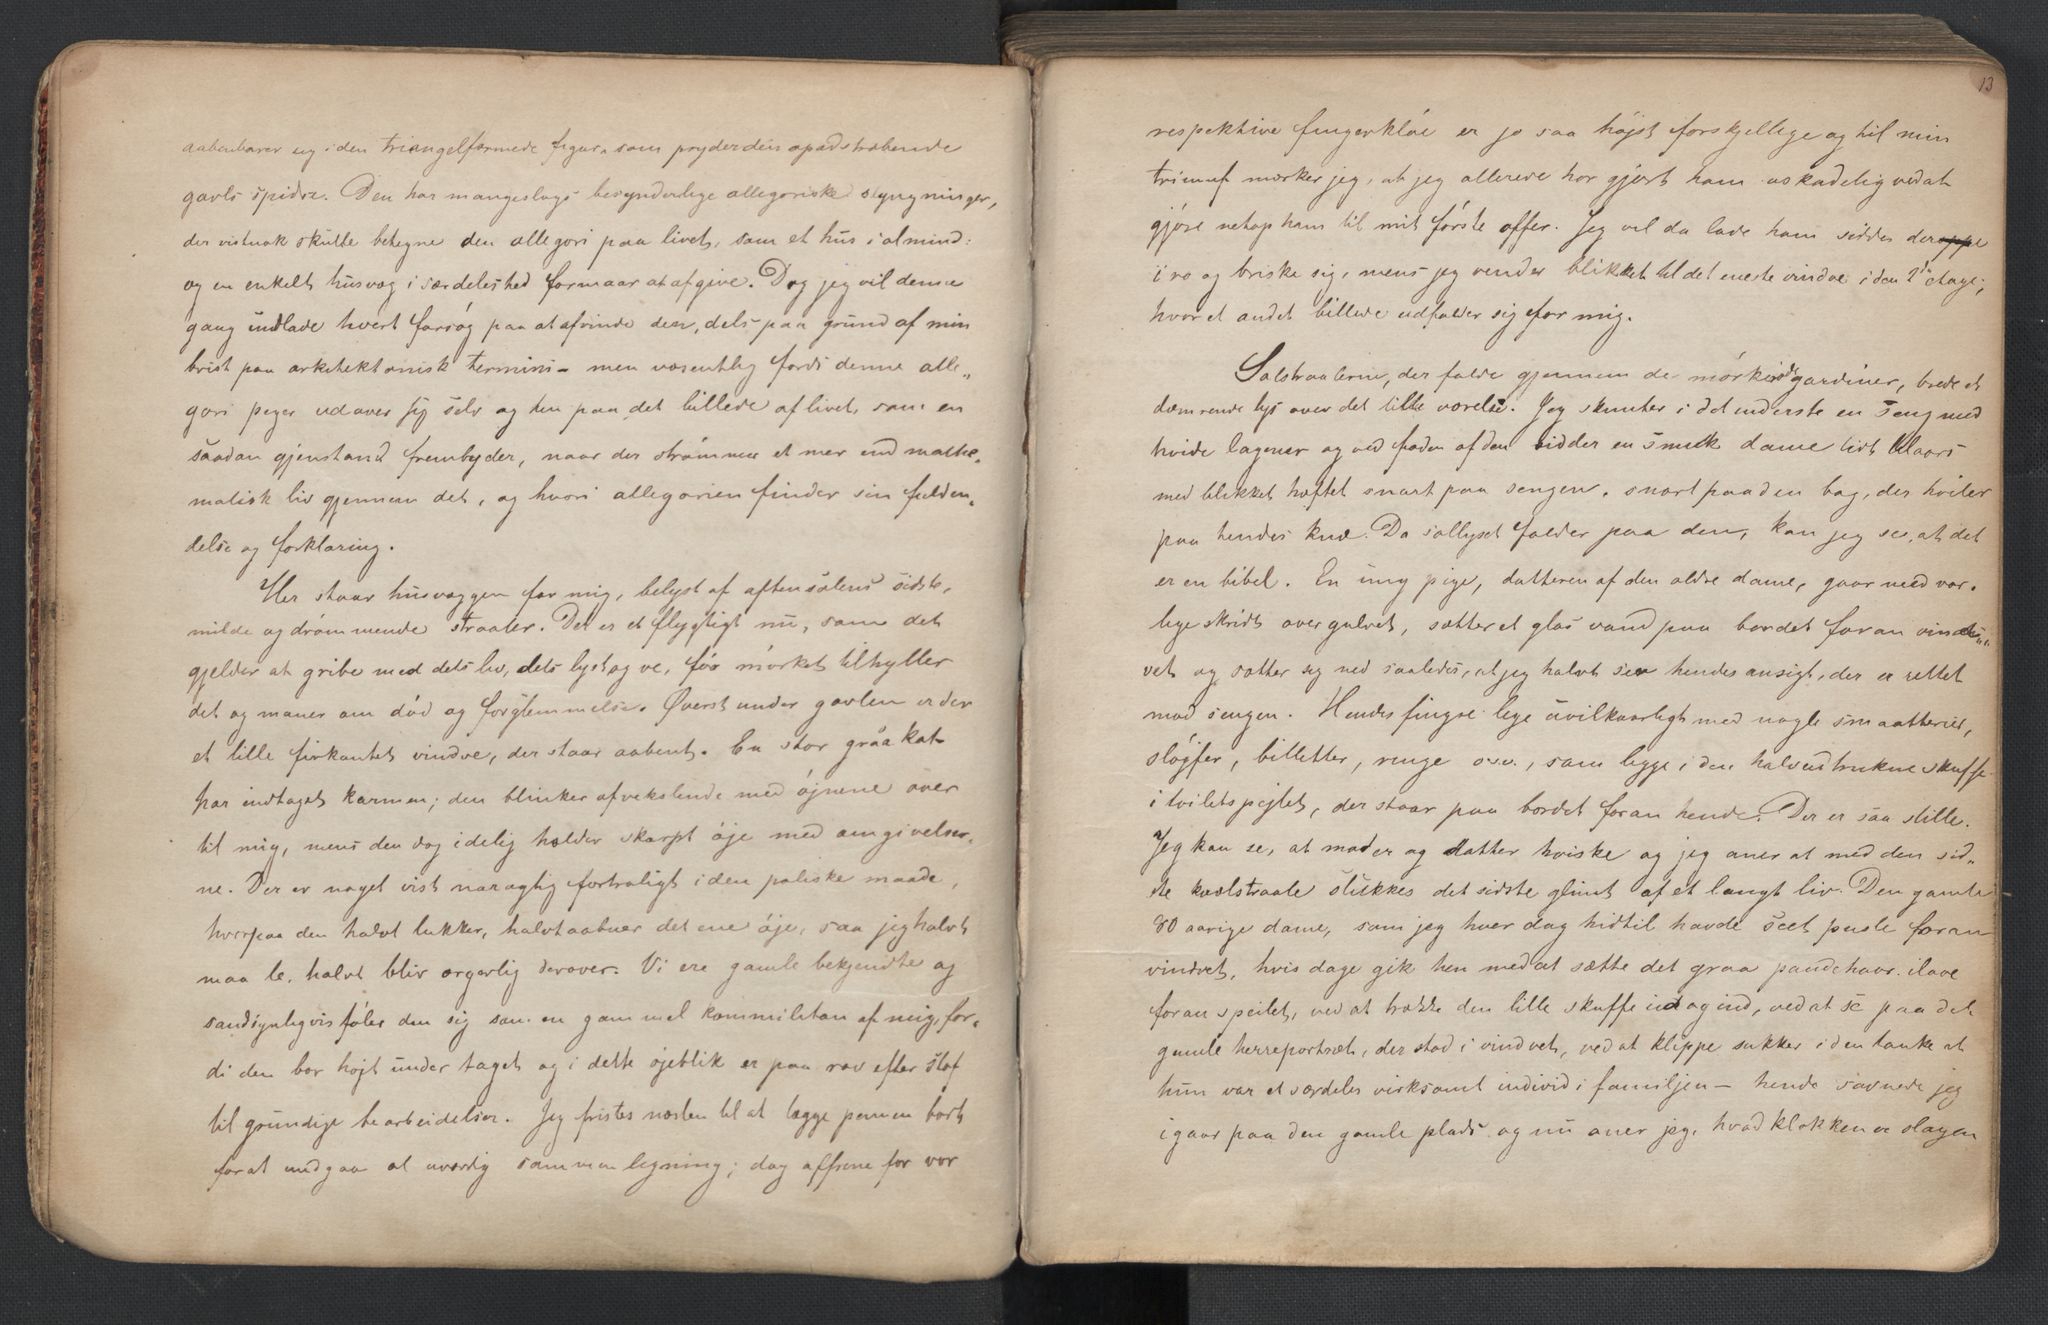 aabenbarer sig i den triangelformede figur, som pryder den opadstræbende
gavls spidse. Den har mangeslags besynderlige allegoriske slyngninger,
der vistnok skulle betegne den allegori paa livet, som et hus i almind:
og en enkelt husvæg i særdeleshed formaar at afgive. Dog jeg vil denne
gang undlade hvert forsøg paa at afvinde den, dels paa grund af min
brist paa arkitektonisk termini – men væsentlig fordi denne alle„
gori peger ud over sig selv og hen paa det billede af livet, som en
saadan gjenstand frembyder, naar der strømmer et mer end mathe„
matisk liv gjennem det, og hvori allegorien finder sin fulden„
delse og forklaring.
Her staar husvæggen for mig, belyst af aftensolens sidste,
milde og drømmende straaler. Det er et flygtigt nu, som det
gjelder at gribe med dets liv, dets lyst og ve, før mørket tilhyller
det og maner om død og forglemmelse. Øverst under gavlen er der
et lille firkantet vindve, der staar aabent. En stor graa kat
har indtaget karmen; den blinker afvekslende med øjnene over
til mig, mens den dog idelig holder skarpt øje med omgivelser„
ne. Der er noget vist nærgaaende fortroligt i den poliske maade,
hvorpaa den halvt lukker, halvt aabner det ene øje, saa jeg halvt
maa le, halvt bliv ærgerlig derover. Vi ere gamle bekjendte og
sandsynligvis føler den sig som en gammel kommiliton af mig, for„
di den bor højt under taget og i dette øjeblik er paa rov efter stof
til grundige bearbeidelser. Jeg fristes næsten til at lægge pennen bort
for at undgaa al uværdig sammenligning; dog afsnene for vor
13
respektive fingerkløe er jo saa højst forskjellige og til min
triumf mærker jeg, at jeg allerede har gjørt ham uskadelig ved at
gjøre netop ham til mit første offer. Jeg vil da lade ham sidde deroppe
i ro og briske sig, mens jeg vender blikket til det eneste vindve i den 2den etage,
hvor et andet billede udfolder sig for mig.
Solstraalerne, der falde gjennem de mørkerøde gardiner, brede et
dæmrende lys over det lille værelse. Jeg skimter i det inderste en seng med
hvide lagener og ved foden af den sidder en smuk dame tilaars
med blikket hæftet snart paa sengen, snart paa den bog, der hviler
paa hendes knæ. Da sollyset falder paa den, kan jeg see, at det
er en bibel. En ung pige, datteren af den ældre dame, gaar med var„
lige skridt over gulvet, sætter et glas vand paa bordet foran vind„
vet og sætter sig ned saaledes, at jeg halvt ser hendes ansigt, der er rettet
mod sengen. Hendes fingre lege uvilkaarligt med nogle smaatterier,
sløjfer, billetter, ringe o.s.v., som ligge i den halvudtrukne skuffe
i toiletspejlet, der staar paa bordet foran hende. Der er saa stille.
Jeg kan se, at moder og datter hviske og jeg aner at med den sid„
ste kveldstraale slukkes det sidste glimt af et langt liv. Den gamle
80 aarige dame, som jeg hver dag hidtil havde seet pusle foran
vindvet, hvis dage gik hen med at sætte det graa pandehaar i lave
foran speilet, ved at trække den lille skuffe ud og ind, ved at se paa det
gamle herreportræt, der stod i vindvet, ved at klippe sukker i den tanke at
hun var et særdeles virksomt individ i familjen – hende savnede jeg
igaar paa den gamle plads og nu aner jeg, hvad klokken er slagen